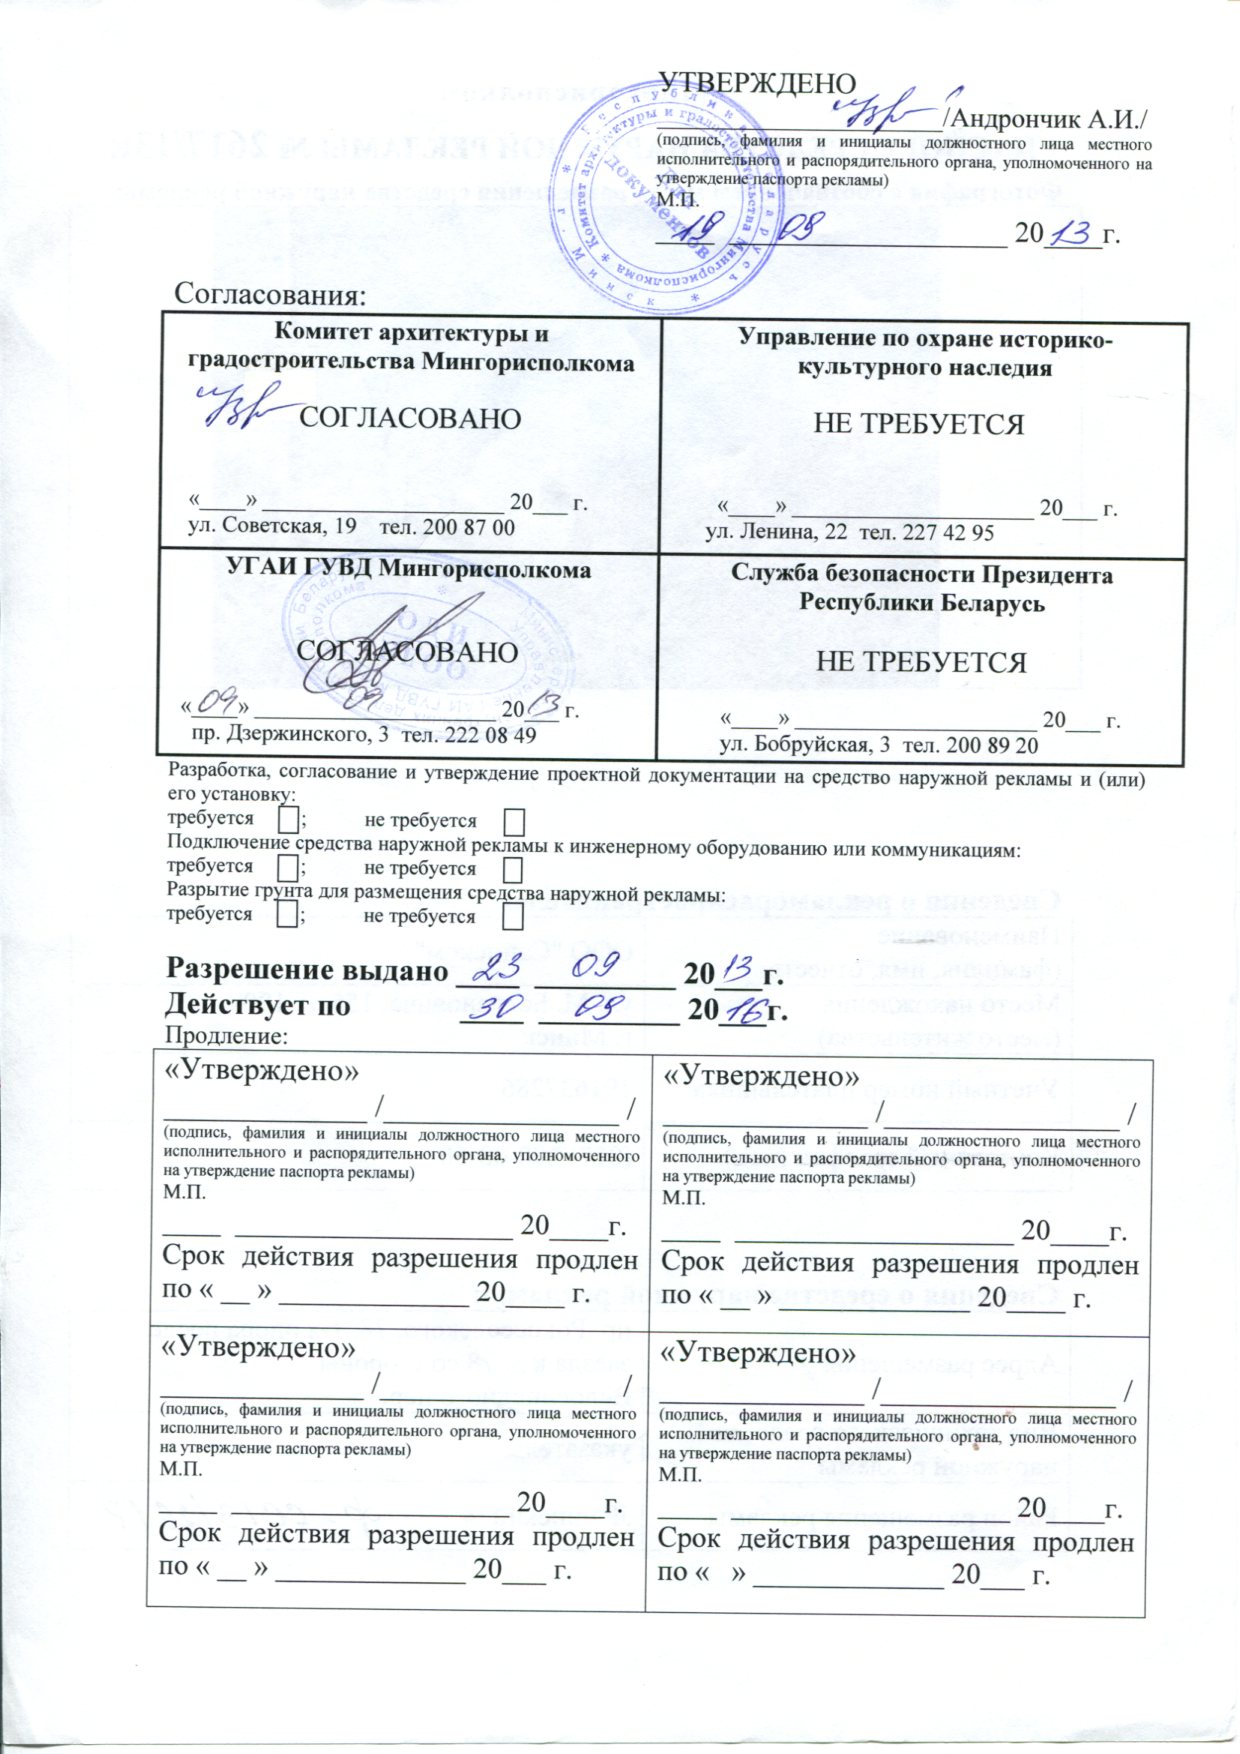 УТВЕРЖДЕНО
/Андрончик А.И./
(подпись, фамилия и инициалы должностного лица местного
исполнительного и распорядительного органа, уполномоченного на
утверждение паспорта рекламы)
М.П.
19 09 2013г.
г. Минск * Республика Беларусь *
Комитет архитектуры и градостроительства Мингорисполкома *
Для
документов
Согласования:
Комитет архитектуры и
градостроительства Мингорисполкома
СОГЛАСОВАНО
«____» ____________________ 20___ г.
ул. Советская, 19 тел. 200 87 00
Управление по охране историко-
культурного наследия
НЕ ТРЕБУЕТСЯ
«____» ____________________ 20___ г.
ул. Ленина, 22 тел. 227 42 95
УГАИ ГУВД Мингорисполкома
СОГЛАСОВАНО
«09» 09 2013 г.
пр. Дзержинского, 3 тел. 222 08 49
Служба безопасности Президента
Республики Беларусь
НЕ ТРЕБУЕТСЯ
«____» ____________________ 20___ г.
ул. Бобруйская, 3 тел. 200 89 20
Разработка, согласование и утверждение проектной документации на средство наружной рекламы и (или)
его установку:
требуется ; не требуется
Подключение средства наружной рекламы к инженерному оборудованию или коммуникациям:
требуется ; не требуется
Разрытие грунта для размещения средства наружной рекламы:
требуется ; не требуется
Разрешение выдано 23 09 2013г.
Действует по 30 09 2016г.
Продление:
«Утверждено»
______________ /________________ /
(подпись, фамилия и инициалы должностного лица местного
исполнительного и распорядительного органа, уполномоченного
на утверждение паспорта рекламы)
М.П.
____ ___________________ 20____г.
Срок действия разрешения продлен
по « __ » _____________ 20____ г.
«Утверждено»
______________ /________________ /
(подпись, фамилия и инициалы должностного лица местного
исполнительного и распорядительного органа, уполномоченного
на утверждение паспорта рекламы)
М.П.
____ ___________________ 20____г.
Срок действия разрешения продлен
по « __ » _____________ 20____ г.
«Утверждено»
______________ /________________ /
(подпись, фамилия и инициалы должностного лица местного
исполнительного и распорядительного органа, уполномоченного
на утверждение паспорта рекламы)
М.П.
____ ___________________ 20____г.
Срок действия разрешения продлен
по « __ » _____________ 20___ г.
«Утверждено»
______________ /________________ /
(подпись, фамилия и инициалы должностного лица местного
исполнительного и распорядительного органа, уполномоченного
на утверждение паспорта рекламы)
М.П.
____ ___________________ 20____г.
Срок действия разрешения продлен
по « » _____________ 20___ г.